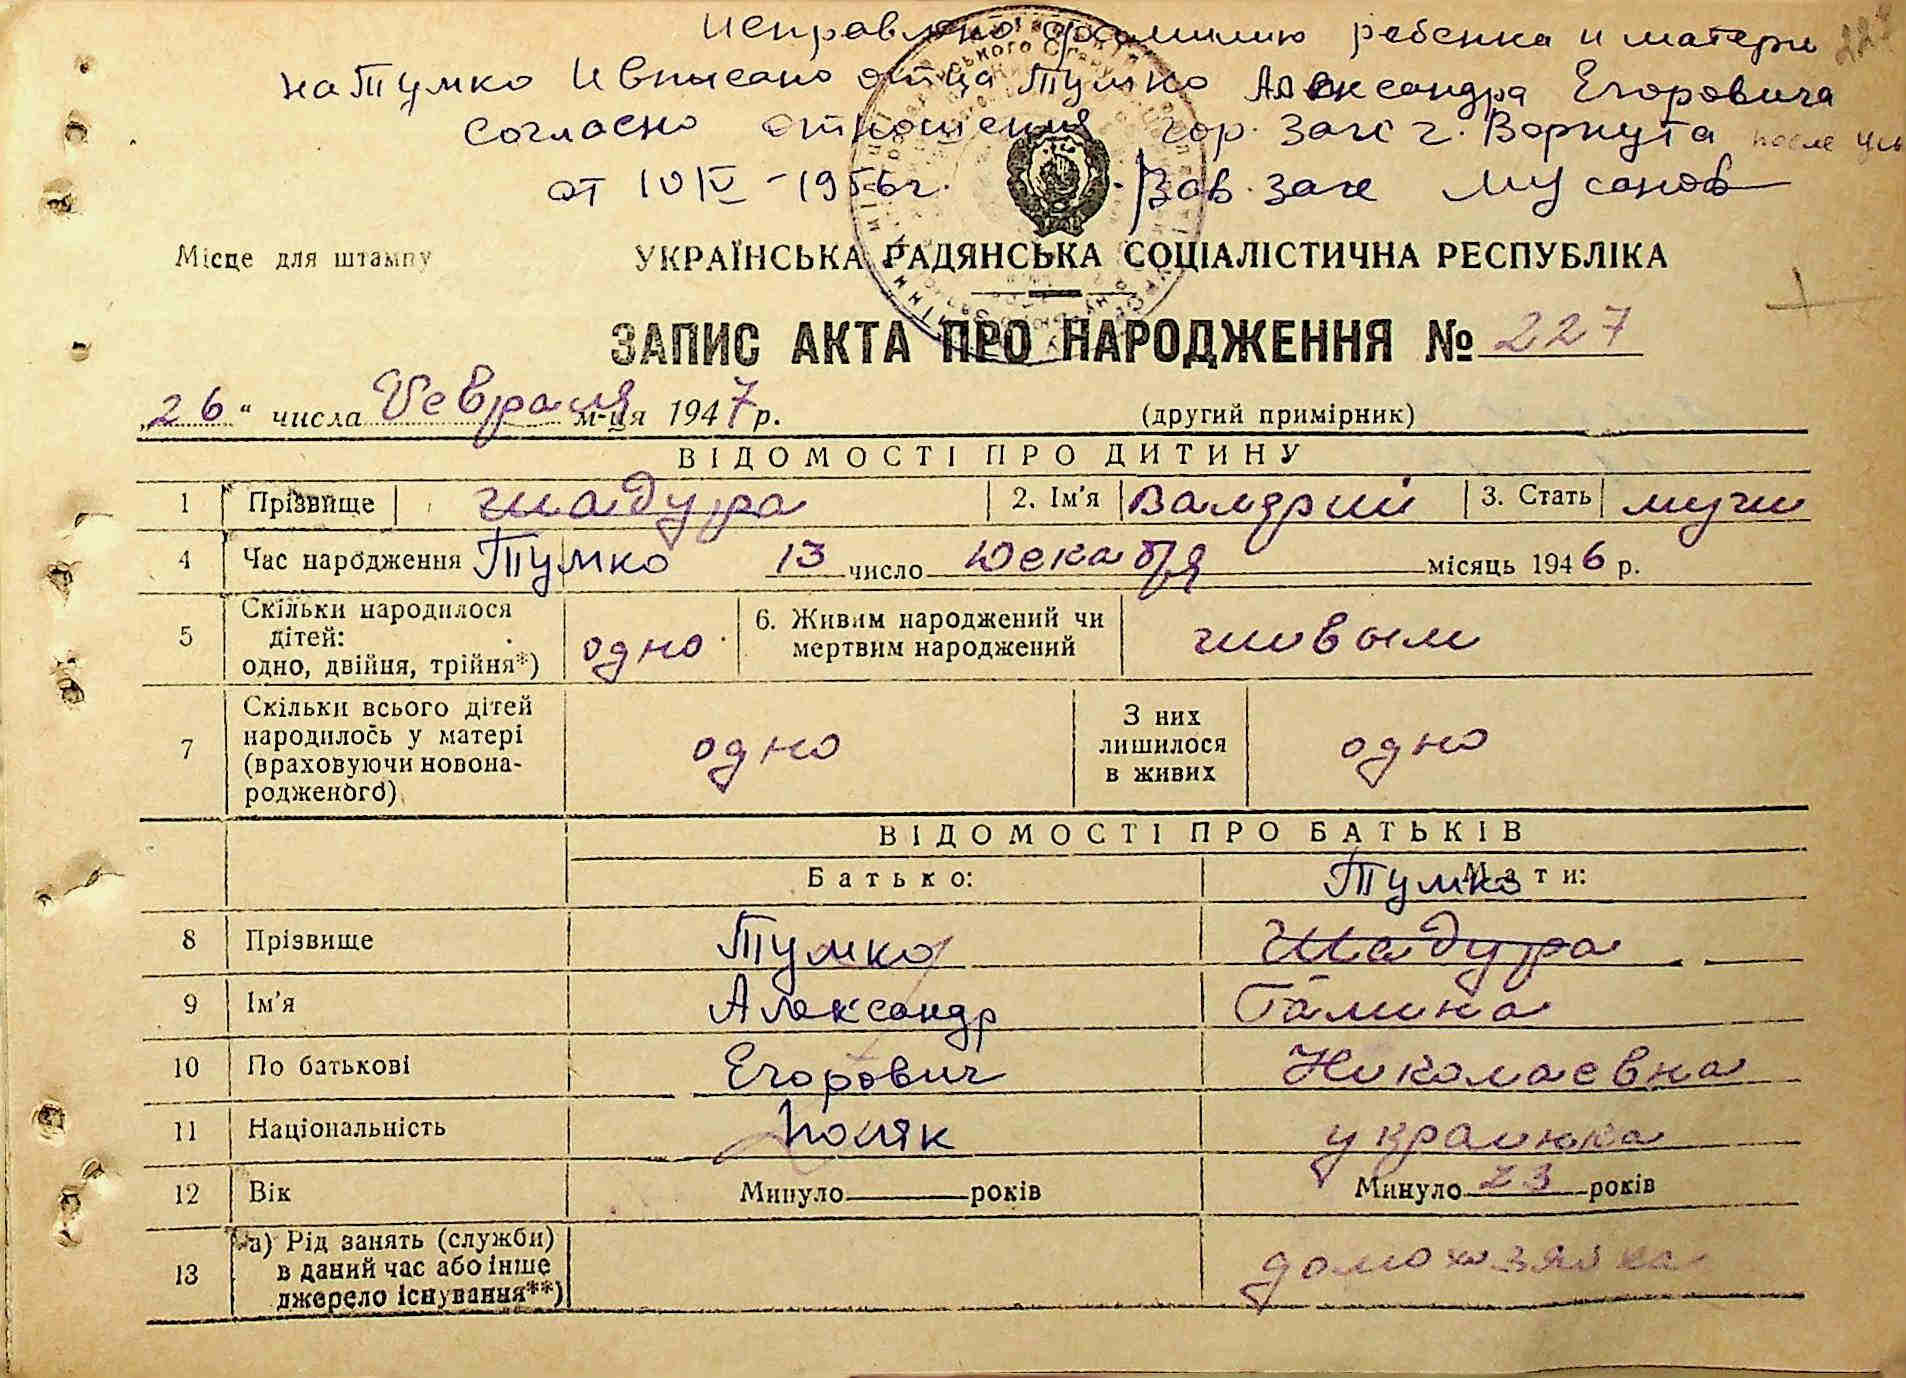 Исправлено фамилию ребенка и матери
на Тумко и вписано отца Тумко Александра Егоровича
согласно отношения гор. Загс г. Воркута после
от 10 IV - 1956 г. Зав. загс
Місце для штампу
УКРАЇНСЬКА РАДЯНСЬКА СОЦІАЛІСТИЧНА РЕСПУБЛІКА
ЗАПИС АКТА ПРО НАРОДЖЕННЯ № 227
„26“ числа Февраля м-ця 1947 р. (другий примірник)
ВІДОМОСТІ ПРО ДИТИНУ
1 Прізвище Шадура 2. Ім'я Валерий 3. Стать муж
4 Час народження Тумко 13 число Декабря місяць 1946 р.
5 Скільки народилося дітей: одно, двійня, трійня*) одно 6. Живим народжений чи мертвим народжений живым
7 Скільки всього дітей народилось у матері (враховуючи новонародженого) одно З них лишилося в живих одно
ВІДОМОСТІ ПРО БАТЬКІВ
Батько: Мати: Тумко
8 Прізвище Тумко Шадура
9 Ім'я Александр Галина
10 По батькові Егорович Николаевна
11 Національність Поляк украинка
12 Вік Минуло років Минуло 23 років
13 а) Рід занять (служби) в даний час або інше джерело існування**) домохозяйка